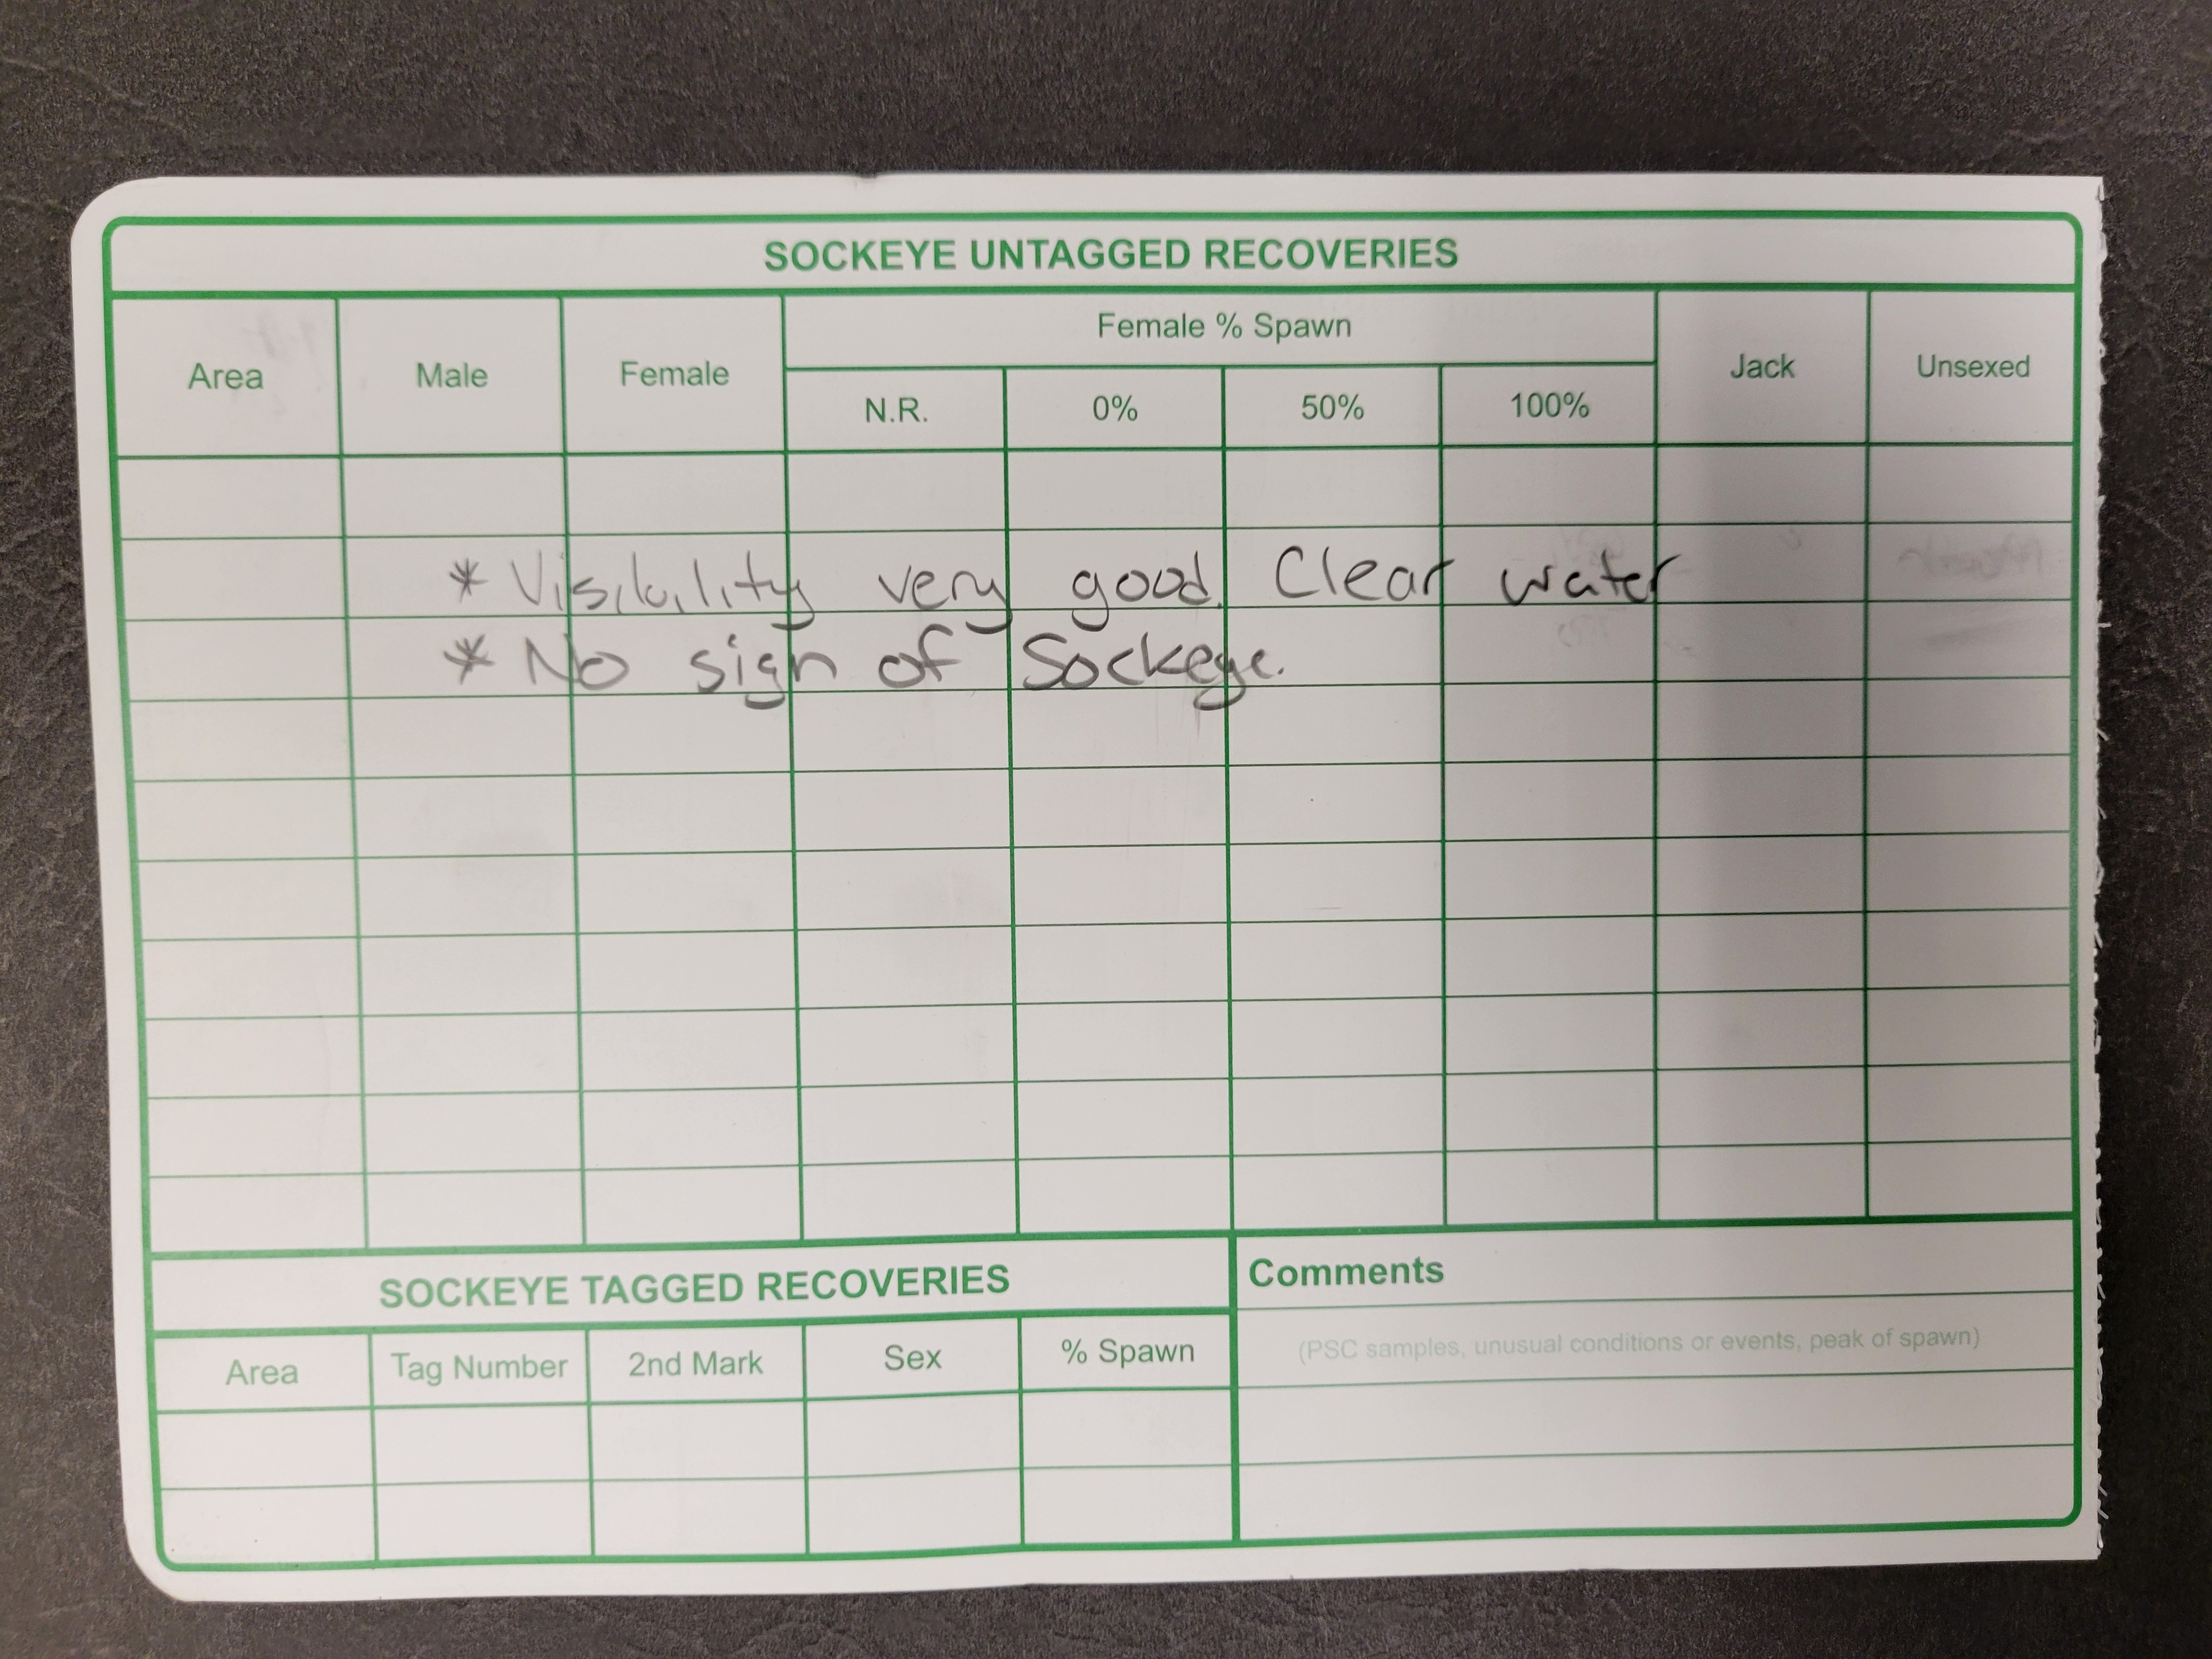 SOCKEYE UNTAGGED RECOVERIES
Area Male Female Female % Spawn Jack Unsexed
N.R. 0% 50% 100%
* Visibility very good. Clear water
* No sign of Sockeye.
SOCKEYE TAGGED RECOVERIES
Area Tag Number 2nd Mark Sex % Spawn
Comments
(PSC samples, unusual conditions or events, peak of spawn)